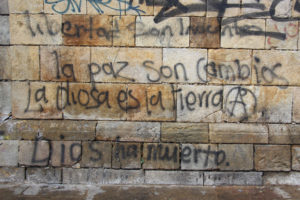 libertad son
la paz son cambios
la diosa es la tierra Ⓐ
Dios ha muerto.